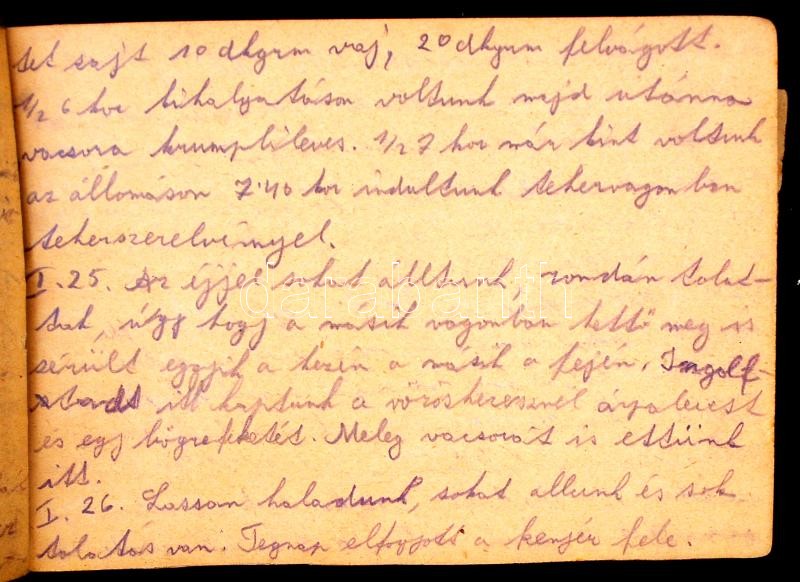 tet sajt 10 dkgrm vaj, 20 dkgrm felvágott.
1/2 6 kor kihalgatáson voltunk majd utánna
vacsora krumplileves. 1/2 7 kor már kint voltunk
az állomáson 7.40 kor indultunk tehervagonban
teherszerelvényel.
I. 25. Az éjjel sokat álltunk, rondán tolat-
tak, úgy hogy a másik vagonban kettő meg is
sérült egyik a kezén a másik a fején. Ingolf-
stadt itt kaptunk a vöröskeresznél árpalevest
és egy bögre feketét. Meleg vacsorát is ettünk
itt.
I. 26. Lassan haladunk, sokat allunk és sok
tolatás van. Tegnap elfogyott a kenyér fele.
darabanth